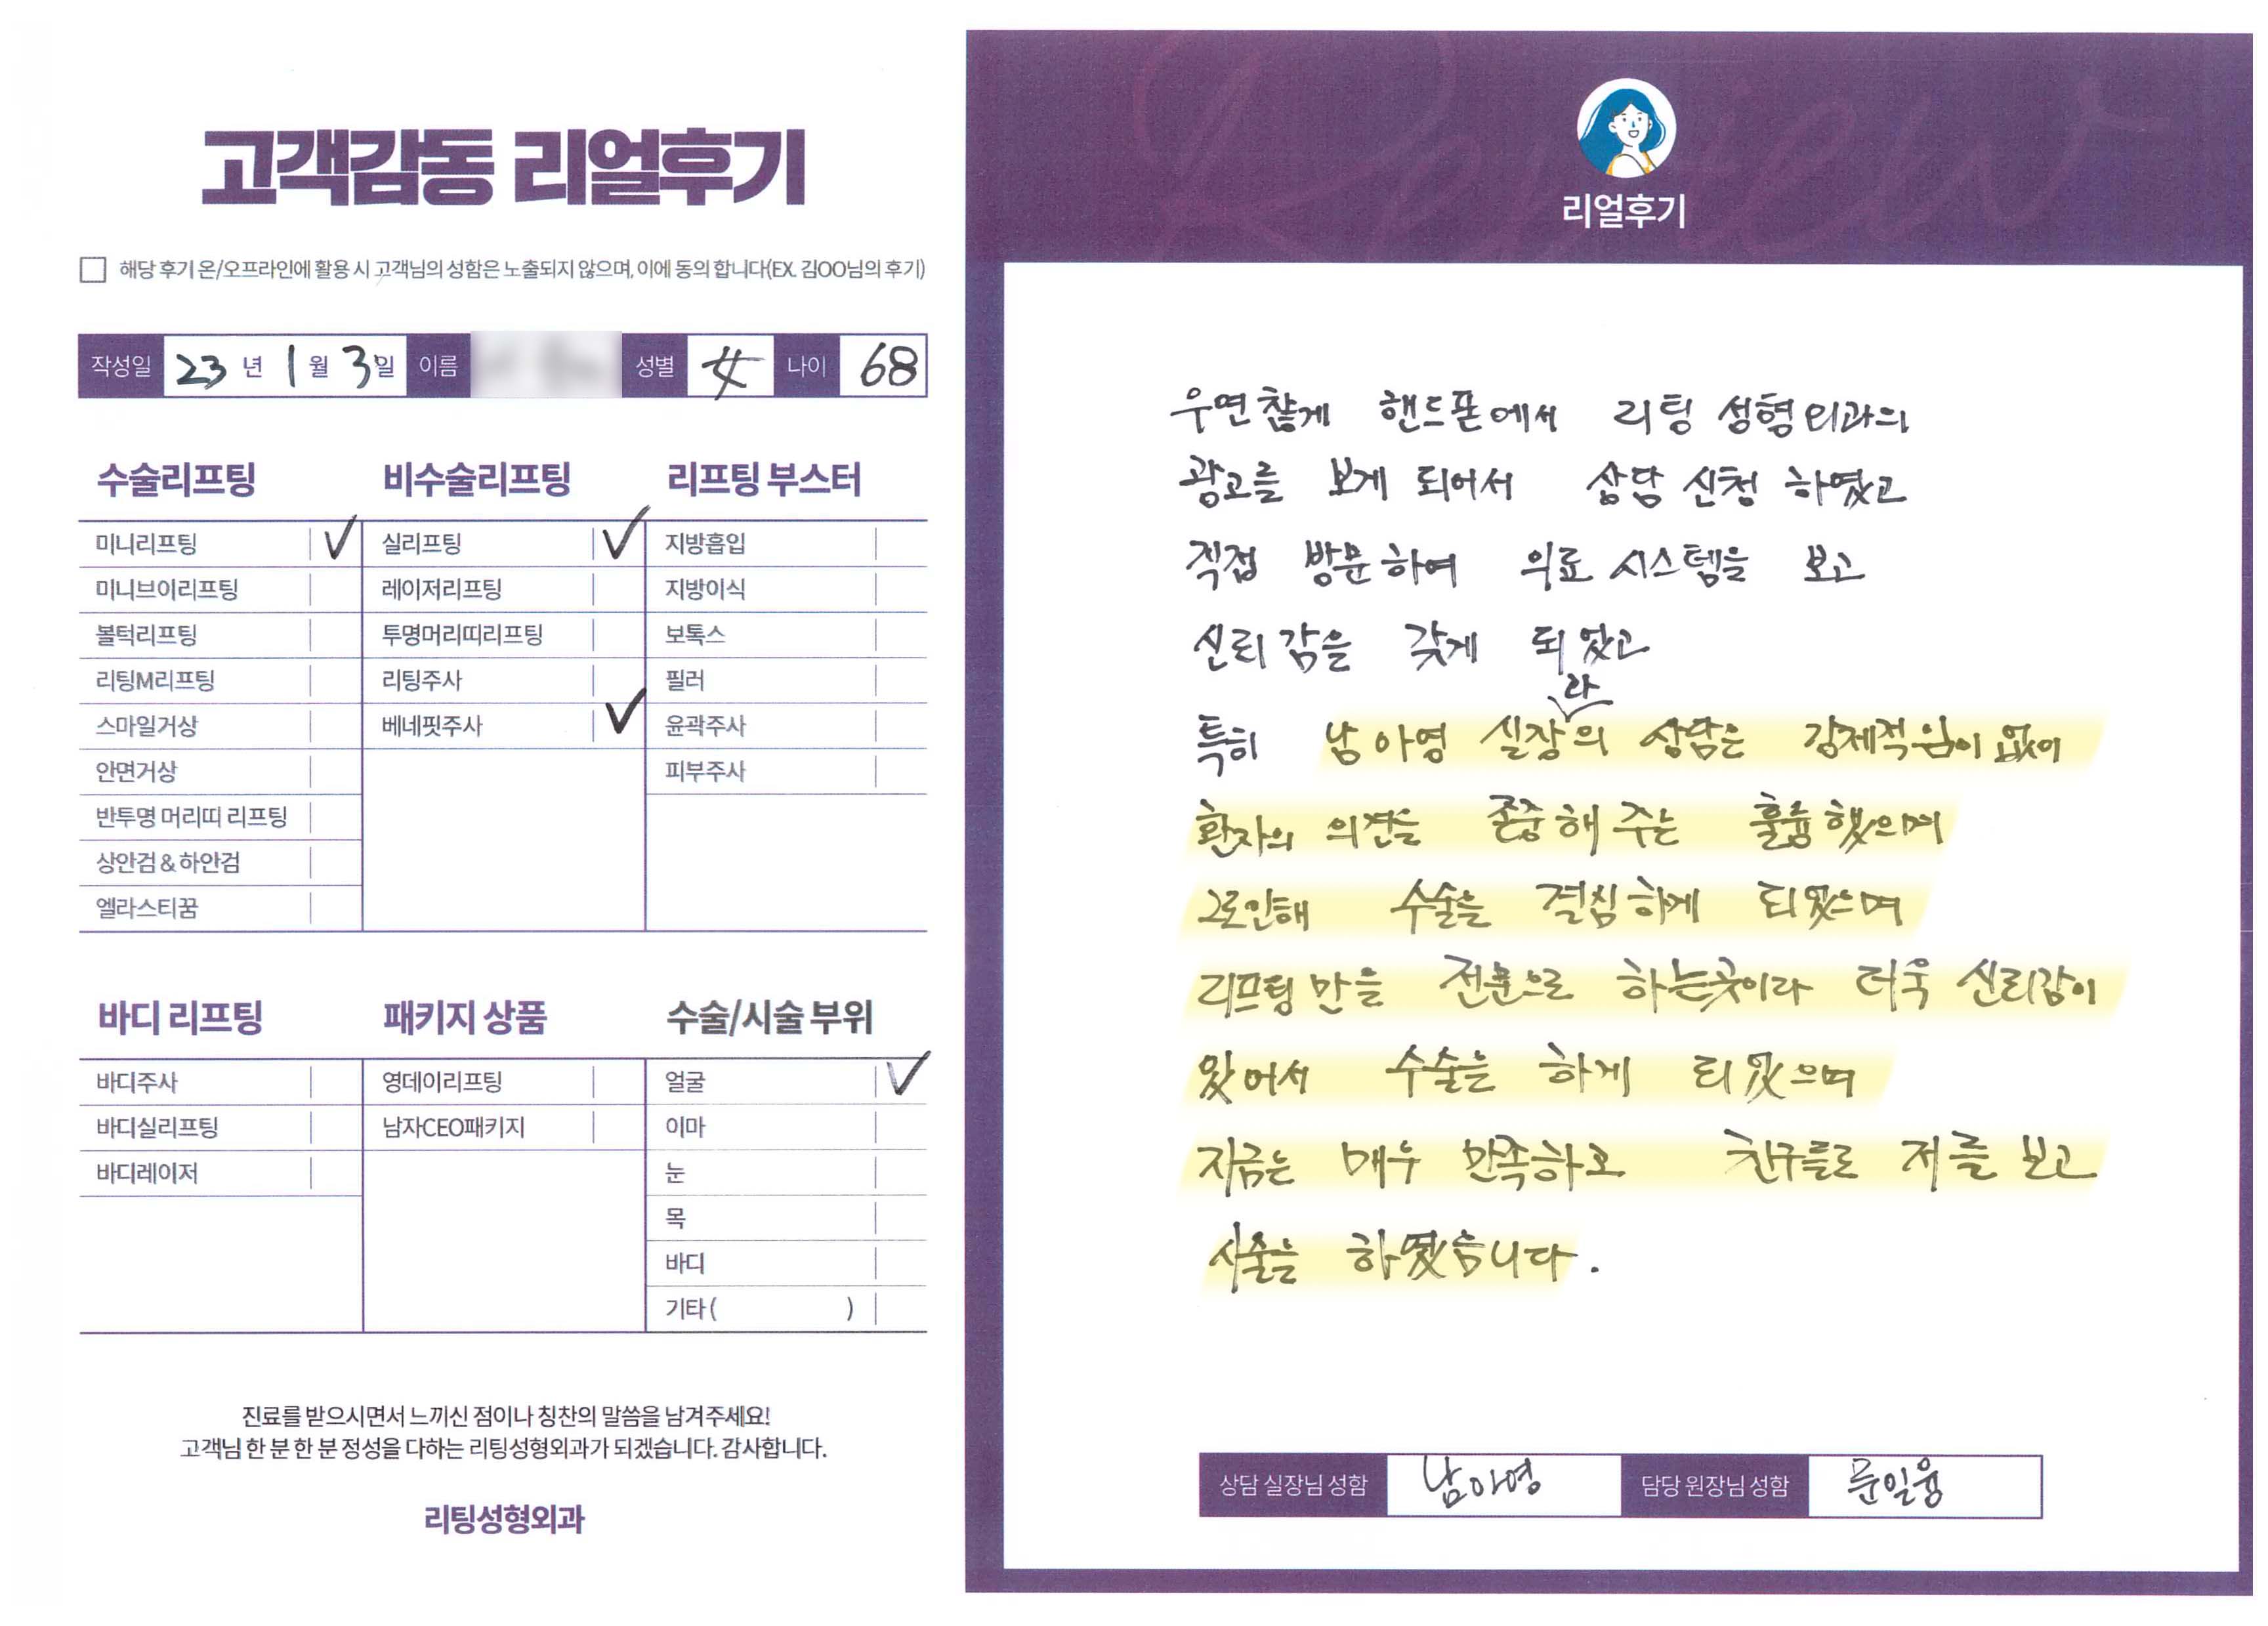 고객감동 리얼후기
해당 후기 온/오프라인에 활용 시 고객님의 성함은 노출되지 않으며, 이에 동의 합니다(EX. 김OO님의 후기)
작성일 23년 1월 3일 이름 성별 女 나이 68
수술리프팅
미니리프팅 ✓
미니브이리프팅
볼턱리프팅
리팅M리프팅
스마일거상
안면거상
반투명 머리띠 리프팅
상안검 & 하안검
엘라스티꿈
비수술리프팅
실리프팅 ✓
레이저리프팅
투명머리띠리프팅
리팅주사
베네핏주사 ✓
리프팅 부스터
지방흡입
지방이식
보톡스
필러
윤곽주사
피부주사
바디 리프팅
바디주사
바디실리프팅
바디레이저
패키지 상품
영데이리프팅
남자CEO패키지
수술/시술 부위
얼굴 ✓
이마
눈
목
바디
기타 ( )
진료를 받으시면서 느끼신 점이나 칭찬의 말씀을 남겨주세요!
고객님 한 분 한 분 정성을 다하는 리팅성형외과가 되겠습니다. 감사합니다.
리팅성형외과
Review
리얼후기
우연찮게 핸드폰에서 리팅 성형외과의
광고를 보게 되어서 상담 신청 하였고
직접 방문하여 의료 시스템을 보고
신뢰감을 갖게 되었고
특히 남아영 실장과의 상담은 강제적임이 없이
환자의 의견을 존중해 주는 훌륭했으며
그로인해 수술을 결심하게 되었으며
리프팅만을 전문으로 하는곳이라 더욱 신뢰감이
있어서 수술을 하게 되었으며
지금은 매우 만족하고 친구들로 저를 보고
시술을 하였습니다.
상담 실장님 성함 남아영 담당 원장님 성함 문일웅